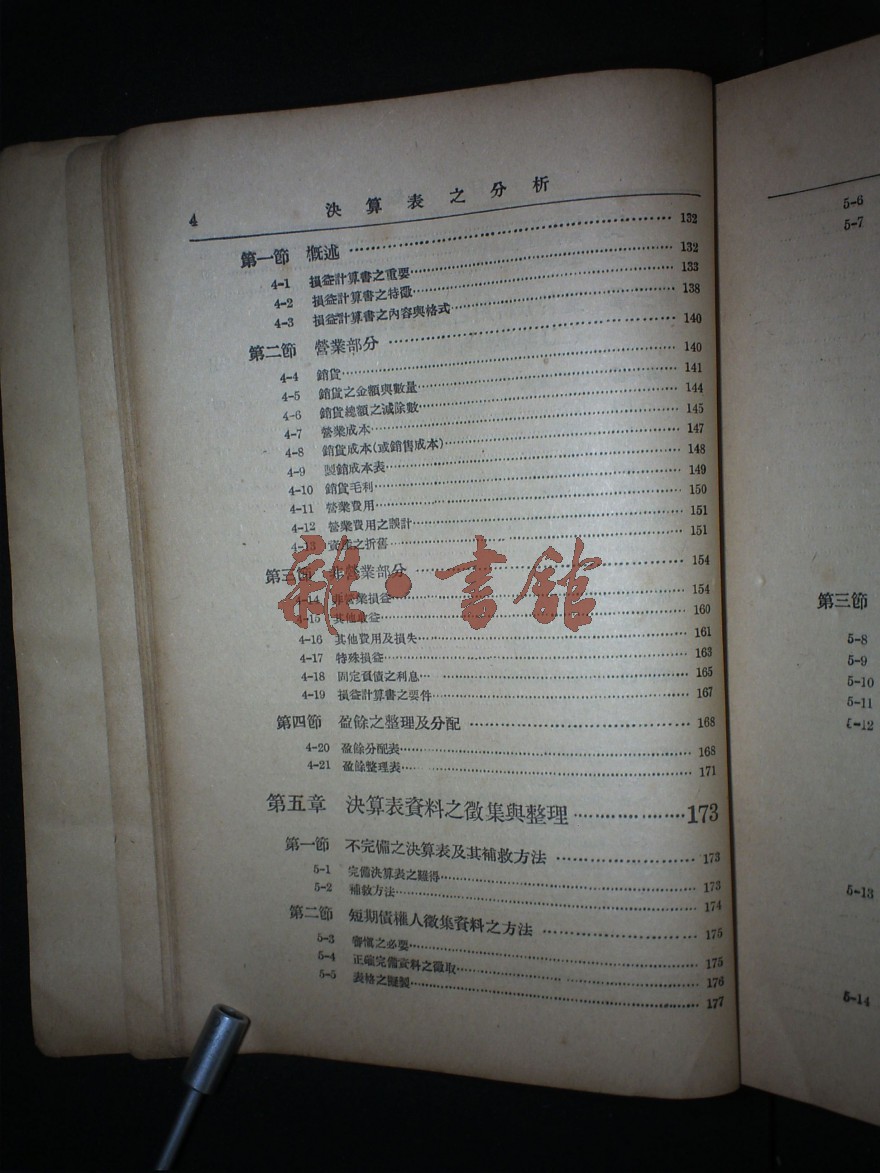 4 決算表之分析
第一節 慨述 132
4-1 損益計算書之重要 132
4-2 損益計算書之特徵 133
4-3 損益計算書之內容與格式 138
第二節 營業部分 140
4-4 銷貨 140
4-5 銷貨之金額與數量 141
4-6 銷貨總額之減除數 144
4-7 營業成本 145
4-8 銷貨成本(或銷售成本) 147
4-9 製銷成本表 148
4-10 銷貨毛利 149
4-11 營業費用 150
4-12 營業費用之誤計 151
4-13 資產之折舊 151
第三節 非營業部分 154
4-14 非營業損益 154
4-15 其他收益 160
4-16 其他費用及損失 161
4-17 特殊損益 163
4-18 固定負債之利息 165
4-19 損益計算書之要件 167
第四節 盈餘之整理及分配 168
4-20 盈餘分配表 168
4-21 盈餘整理表 171
第五章 決算表資料之徵集與整理 173
第一節 不完備之決算表及其補救方法 173
5-1 完備決算表之難得 173
5-2 補救方法 174
第二節 短期債權人徵集資料之方法 175
5-3 審愼之必要 175
5-4 正確完備資料之徵取 176
5-5 表格之擬製 177
5-6
5-7
第三節
5-8
5-9
5-10
5-11
5-12
5-13
5-14
雜·書館